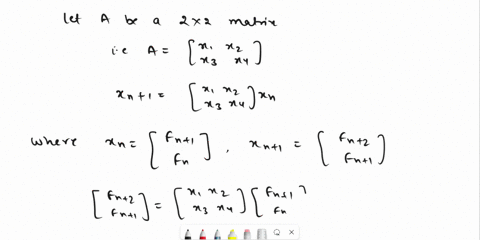 let A be a 2×2 matrix
i.e A = [x₁ x₂ x₃ x₄]
xₙ₊₁ = [x₁ x₂ x₃ x₄] xₙ
where xₙ = [Fₙ₊₁ Fₙ], xₙ₊₁ = [Fₙ₊₂ Fₙ₊₁]
[Fₙ₊₂ Fₙ₊₁] = [x₁ x₂ x₃ x₄] [Fₙ₊₁ Fₙ]